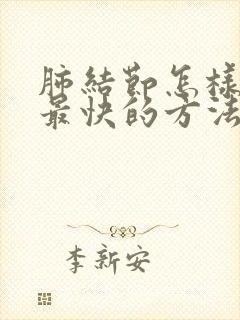 肺結節怎樣
最快的方法
李新安